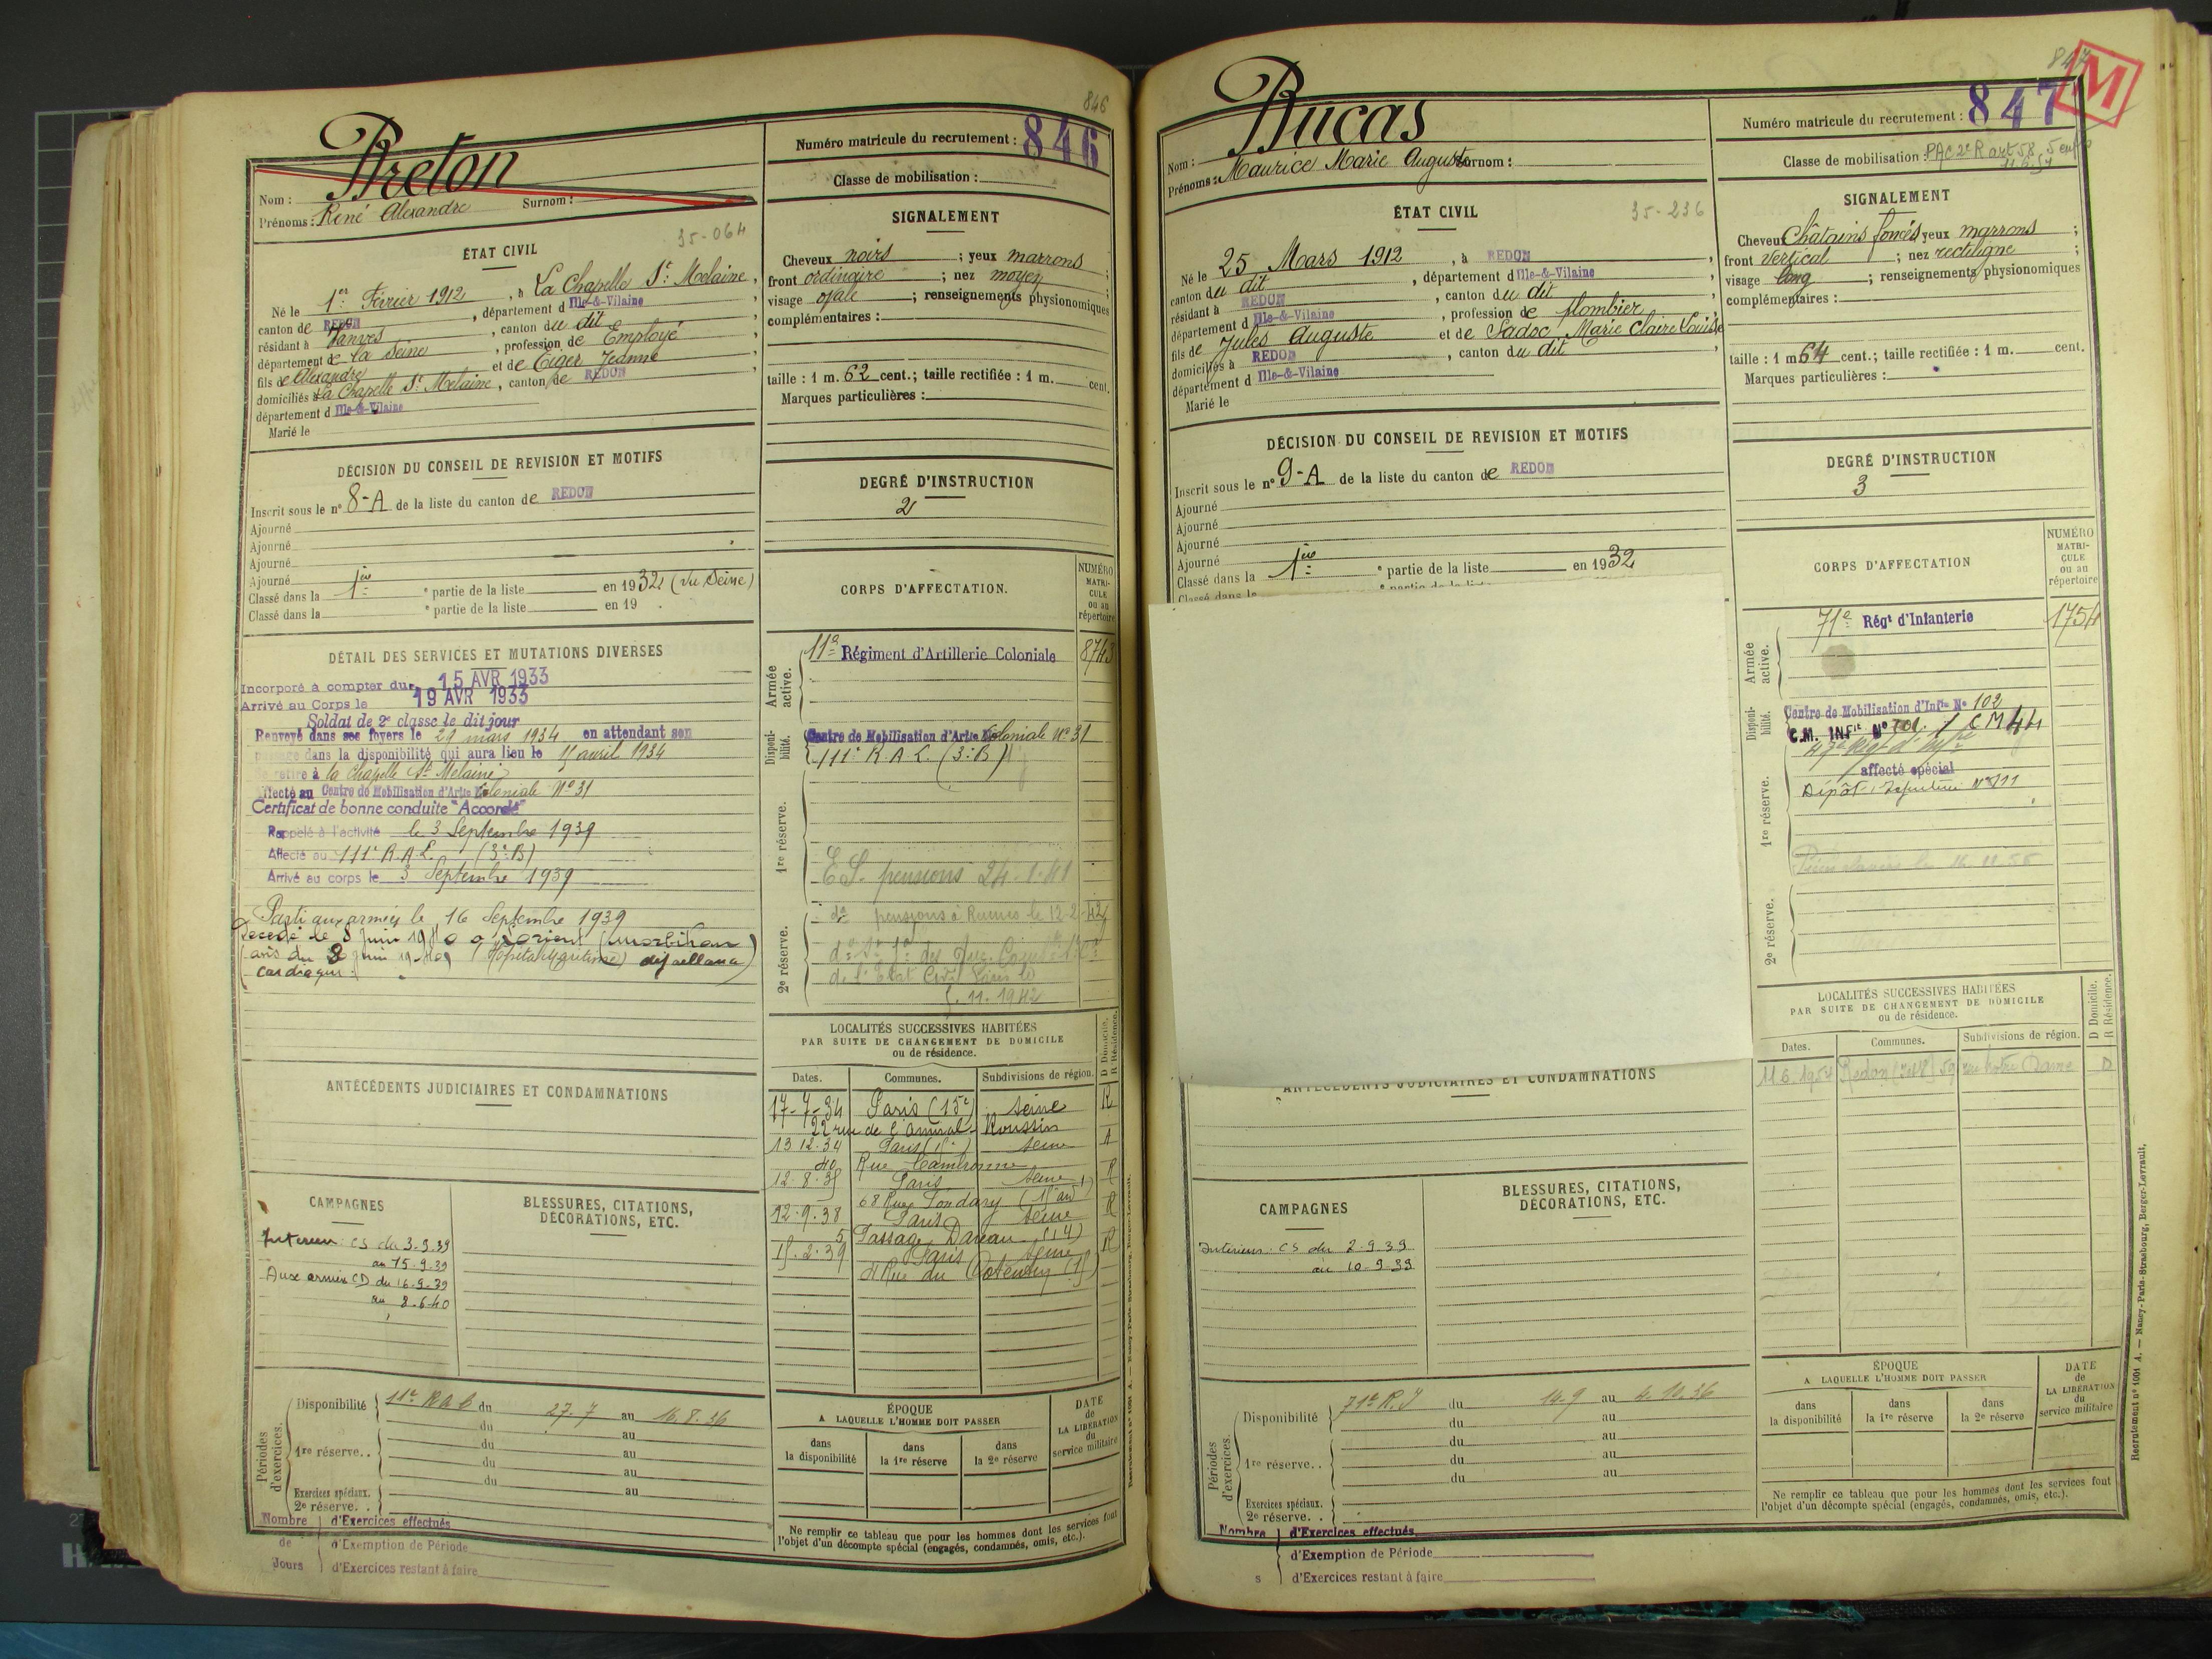 846
Breton
Nom :
Prénoms : René Alexandre Surnom :
Numéro matricule du recrutement : 846
Classe de mobilisation :
35-064
ÉTAT CIVIL
Né le 1er Février 1912, à La Chapelle St Melaine,
canton de REDON, département d Ille-&-Vilaine
résidant à Vanves, canton du dit
département de La Seine, profession de Employé
fils de Alexandre et de Eiger Jeanne
domiciliés à La Chapelle St Melaine, canton de REDON
département d Ille-&-Vilaine
Marié le
SIGNALEMENT
Cheveux noirs ; yeux marrons
front ordinaire ; nez moyen ;
visage ovale ; renseignements physionomiques
complémentaires :
taille : 1 m. 62 cent.; taille rectifiée : 1 m. cent.
Marques particulières :
DÉCISION DU CONSEIL DE REVISION ET MOTIFS
Inscrit sous le n° 8-A de la liste du canton de REDON
Ajourné
Ajourné
Ajourné
Ajourné
Classé dans la 1ère e partie de la liste en 1932 (Vu Seine)
Classé dans la e partie de la liste en 19 .
DEGRÉ D'INSTRUCTION
2
DÉTAIL DES SERVICES ET MUTATIONS DIVERSES
Incorporé à compter du 15 AVR 1933
Arrivé au Corps le 19 AVR 1933
Soldat de 2e classe le dit jour
Renvoyé dans ses foyers le 29 mars 1934 en attendant son
passage dans la disponibilité qui aura lieu le 15 avril 1934
Se retire à la Chapelle St Melaine
Affecté au Centre de Mobilisation d'Artie Coloniale N° 31
Certificat de bonne conduite "Accordé"
Rappelé à l'activité le 3 Septembre 1939
Affecté au 111e R.A.L. (3e B)
Arrivé au corps le 3 Septembre 1939
Parti aux armées le 16 Septembre 1939
Décédé le 8 Juin 1940 à Lorient (Morbihan)
(avis du 8 Juin 1940) (Hopital Maritime) défaillance
cardiaque.
CORPS D'AFFECTATION.
NUMÉRO MATRICULE ou au répertoire
Armée active.
11e Régiment d'Artillerie Coloniale 8743
Disponibilité.
Centre de Mobilisation d'Artie Coloniale N° 31
111e R A L. (3e B)
1re réserve.
E S. pensions 24.1.41
2e réserve.
do pensions à Rennes le 12-2-42
de l'Etat Civil Paris le
5.11.1942
LOCALITÉS SUCCESSIVES HABITÉES
PAR SUITE DE CHANGEMENT DE DOMICILE
ou de résidence.
D Domicile. R Résidence.
Dates. Communes. Subdivisions de région.
17-7-34 Paris (15e) Seine R
22 rue de l'Amiral Roussin
13 12.34 Paris Seine
40 Rue Cambronne
12.8.35 Paris Seine R
68 Rue Fondary (15e arrt)
12.9.38 Paris Seine R
5 Passage Dareau (14)
15.2.39 Paris Seine R
4 Rue du Cotentin (15)
ANTÉCÉDENTS JUDICIAIRES ET CONDAMNATIONS
CAMPAGNES
Intérieur : CS du 3.9.39
au 15.9.39
Aux armées CD du 16.9.39
au 8.6.40
BLESSURES, CITATIONS,
DÉCORATIONS, ETC.
Périodes d'exercices.
Disponibilité 11e R A C du 27.7 au 16.8.36
du au
1re réserve.. du au
du au
du au
Exercices spéciaux. au
2e réserve. .
Nombre d'Exercices effectués
de d'Exemption de Période
Jours d'Exercices restant à faire
ÉPOQUE
A LAQUELLE L'HOMME DOIT PASSER
dans la disponibilité
dans la 1re réserve
dans la 2e réserve
DATE de LA LIBÉRATION du service militaire
Ne remplir ce tableau que pour les hommes dont les services font
l'objet d'un décompte spécial (engagés, condamnés, omis, etc.).
847
M
Bucas
Nom :
Prénoms : Maurice Marie Auguste Surnom :
Numéro matricule du recrutement : 847
Classe de mobilisation :
35-236
ÉTAT CIVIL
Né le 25 Mars 1912, à REDON,
canton du dit, département d Ille-&-Vilaine
résidant à REDON, canton du dit,
département d Ille-&-Vilaine, profession de plombier
fils de Jules Auguste et de Sadoc Marie Claire Louise
domiciliés à REDON, canton du dit,
département d Ille-&-Vilaine
Marié le
SIGNALEMENT
Cheveux Châtains foncés yeux marrons ;
front vertical ; nez rectiligne ;
visage long ; renseignements physionomiques
complémentaires :
taille : 1 m 64 cent.; taille rectifiée : 1 m. cent.
Marques particulières :
DÉCISION DU CONSEIL DE REVISION ET MOTIFS
Inscrit sous le n° 9-A de la liste du canton de REDON
Ajourné
Ajourné
Ajourné
Ajourné
Classé dans la 1ère e partie de la liste en 1932
Classé dans la
DEGRÉ D'INSTRUCTION
3
CORPS D'AFFECTATION
NUMÉRO MATRICULE ou au répertoire
Armée active.
71e Régt d'Infanterie 1754
Disponibilité.
Centre de Mobilisation d'Infie N° 102
C.M. INFie N° 701. / CM 44
47e Régt d'Infie
1re réserve.
affecté spécial
Dépôt Infanterie N° 111
2e réserve.
LOCALITÉS SUCCESSIVES HABITÉES
PAR SUITE DE CHANGEMENT DE DOMICILE
ou de résidence.
D Domicile. R Résidence.
Dates. Communes. Subdivisions de région.
11 6 1954 Redon (I & V) 59 rue Notre Dame D
ANTÉCÉDENTS JUDICIAIRES ET CONDAMNATIONS
CAMPAGNES
Intérieur : CS du 2.9.39
au 10.9.39
BLESSURES, CITATIONS,
DÉCORATIONS, ETC.
Périodes d'exercices.
Disponibilité 71e R.I du 14.9 au 4.10.36
du au
1re réserve. . du au
du au
du au
Exercices spéciaux.
2e réserve. .
Nombre d'Exercices effectués
d'Exemption de Période
s d'Exercices restant à faire
ÉPOQUE
A LAQUELLE L'HOMME DOIT PASSER
dans la disponibilité
dans la 1re réserve
dans la 2e réserve
DATE de LA LIBÉRATION du service militaire
Ne remplir ce tableau que pour les hommes dont les services font
l'objet d'un décompte spécial (engagés, condamnés, omis, etc.).
Recrutement n° 1001 A. — Nancy-Paris-Strasbourg, Berger-Levrault.